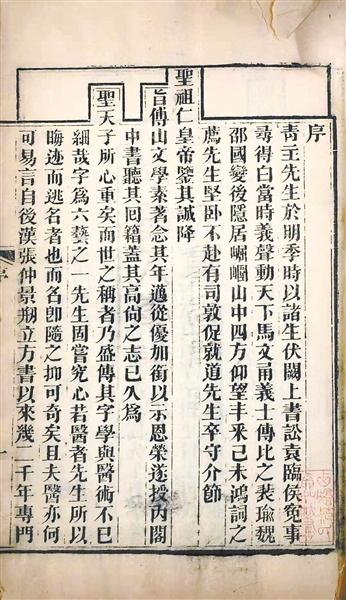 序
靑主先生於明季時以諸生伏闕上書訟袁臨侯寃事
尋得白當時義聲動天下馬文甬義士傳比之裴瑜魏
邵國變後隱居崛𡼿山中四方仰望丰采己未鴻詞之
薦先生堅卧不赴有司敦促就道先生卒守介節
聖祖仁皇帝鑒其誠降
旨傅山文學素著念其年邁從優加銜以示恩榮遂授內閣
中書聽其囘籍蓋其高尙之志已久爲
聖天子所心重矣而世之稱者乃盛傳其字學與醫術不已
細哉字爲六藝之一先生固嘗究心若醫者先生所以
晦迹而逃名者也而名卽隨之抑可奇矣且夫醫亦何
可易言自後漢張仲景剏立方書以來幾二千年專門
序